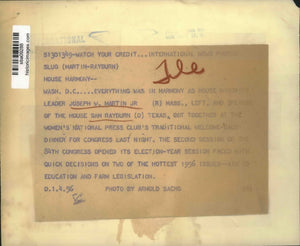 S1301349-WATCH YOUR CREDIT...INTERNATIONAL NEWS PHOTOS
SLUG (MARTIN-RAYBURN)
HOUSE HARMONY--
WASH. D.C...EVERYTHING WAS IN HARMONY AS HOUSE MINORITY
LEADER JOSEPH W. MARTIN JR (R) MASS., LEFT, AND SPEAKER
OF THE HOUSE SAM RAYBURN (D) TEXAS, CUT TOGETHER AT THE
WOMEN'S NATIONAL PRESS CLUB'S TRADITIONAL WELCOME-BACK
DINNER FOR CONGRESS LAST NIGHT. THE SECOND SESSION OF THE
84TH CONGRESS OPENED ITS ELECTION-YEAR SESSION FACED WITH
QUICK DECISIONS ON TWO OF THE HOTTEST 1956 ISSUES--AID TO
EDUCATION AND FARM LEGISLATION.
D.1.4.56 PHOTO BY ARNOLD SACHS
historicimages.com